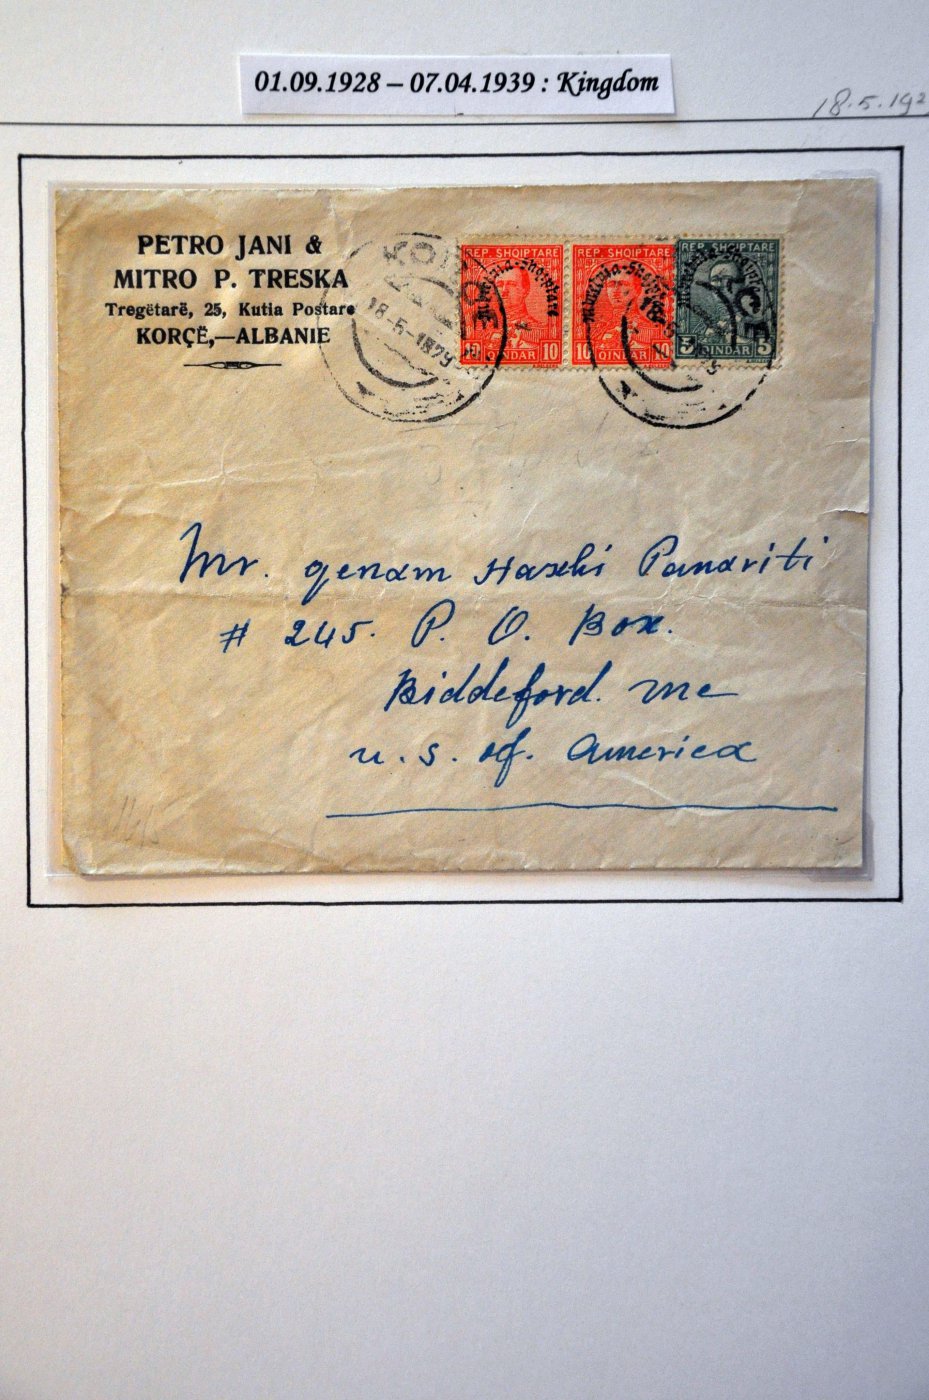 01.09.1928 – 07.04.1939 : Kingdom
18.5.192
PETRO JANI &
MITRO P. TRESKA
Tregëtarë, 25, Kutia Postare
KORÇË,—ALBANIE
REP. SHQIPTARE
Mbretnia-Shqiptare
10 QINDAR 10
REP. SHQIPTARE
Mbretnia-Shqiptare
10 QINDAR 10
REP. SHQIPTARE
Mbretnia-Shqiptare
5 QINDAR 5
18-5-1929
Mr. Qenam Haxhi Panariti
# 245. P. O. Box.
Biddeford. Me
U. S. of. America